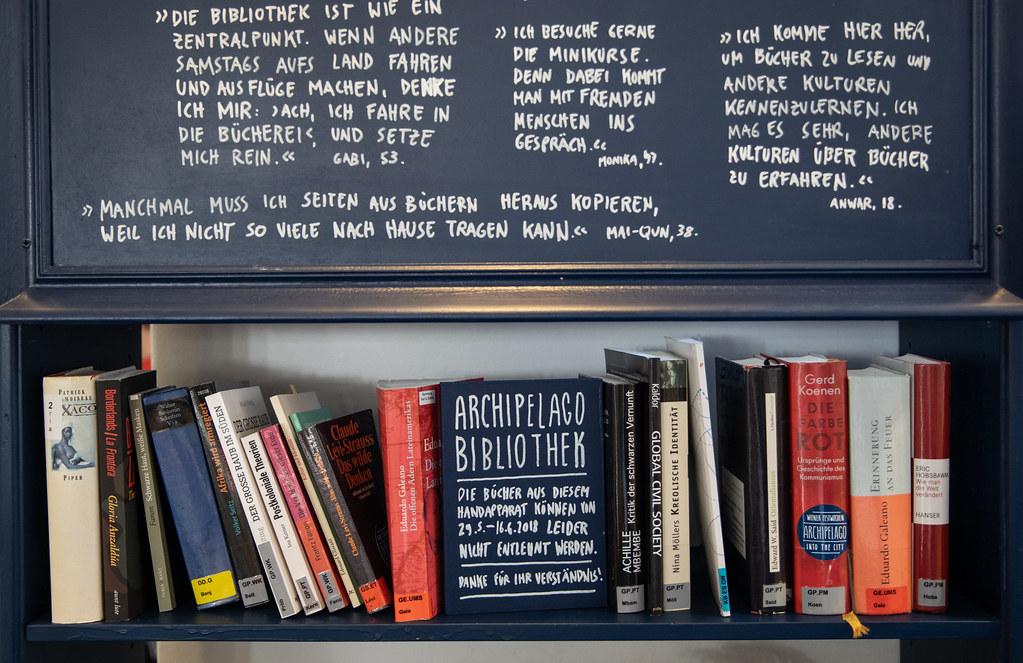 »DIE BIBLIOTHEK IST WIE EIN
ZENTRALPUNKT. WENN ANDERE
SAMSTAGS AUFS LAND FAHREN
UND AUSFLÜGE MACHEN, DENKE
ICH MIR: ›ACH, ICH FAHRE IN
DIE BÜCHEREI‹, UND SETZE
MICH REIN.«
GABI, 53.
»ICH BESUCHE GERNE
DIE MINIKURSE.
DENN DABEI KOMMT
MAN MIT FREMDEN
MENSCHEN INS
GESPRÄCH.«
MONIKA, 47.
»ICH KOMME HIER HER,
UM BÜCHER ZU LESEN UND
ANDERE KULTUREN
KENNENZULERNEN. ICH
MAG ES SEHR, ANDERE
KULTUREN ÜBER BÜCHER
ZU ERFAHREN.«
ANWAR, 18.
»MANCHMAL MUSS ICH SEITEN AUS BÜCHERN HERAUS KOPIEREN,
WEIL ICH NICHT SO VIELE NACH HAUSE TRAGEN KANN.« MAI-QUN, 38.
PIPER
Borderlands / La Frontera Gloria Anzaldúa
Schwarze Haut, weiße Masken
DD.G
Benj
GP.WK
DER GROSSE RAUB IM SÜDEN
Postkoloniale Theorien
Claude
Lévi-Strauss
Das wilde
Denken
Eduardo Galeano
Die offenen Adern Lateinamerikas
GE.UMS
Gale
ARCHIPELAGO
BIBLIOTHEK
DIE BÜCHER AUS DIESEM
HANDAPPARAT KÖNNEN VON
29.5.–16.6.2018 LEIDER
NICHT ENTLEHNT WERDEN.
DANKE FÜR IHR VERSTÄNDNIS!
ACHILLE
MBEMBE
Kritik der schwarzen Vernunft
GP.PT
Mbem
Kaldor
GLOBAL CIVIL SOCIETY
Nina Möllers KREOLISCHE IDENTITÄT
GP.PT
Möll
Edward W. Said Orientalismus
GP.PT
Said
Gerd
Koenen
DIE
FARBE
ROT
Ursprünge und
Geschichte des
Kommunismus
WIENER FESTWOCHEN
ARCHIPELAGO
INTO THE CITY
GP.PM
Koen
Eduardo Galeano
ERINNERUNG
AN DAS FEUER
GE.UMS
Gale
ERIC
HOBSBAWM
Wie man
die Welt
verändert
HANSER
GP.PM
Hobs